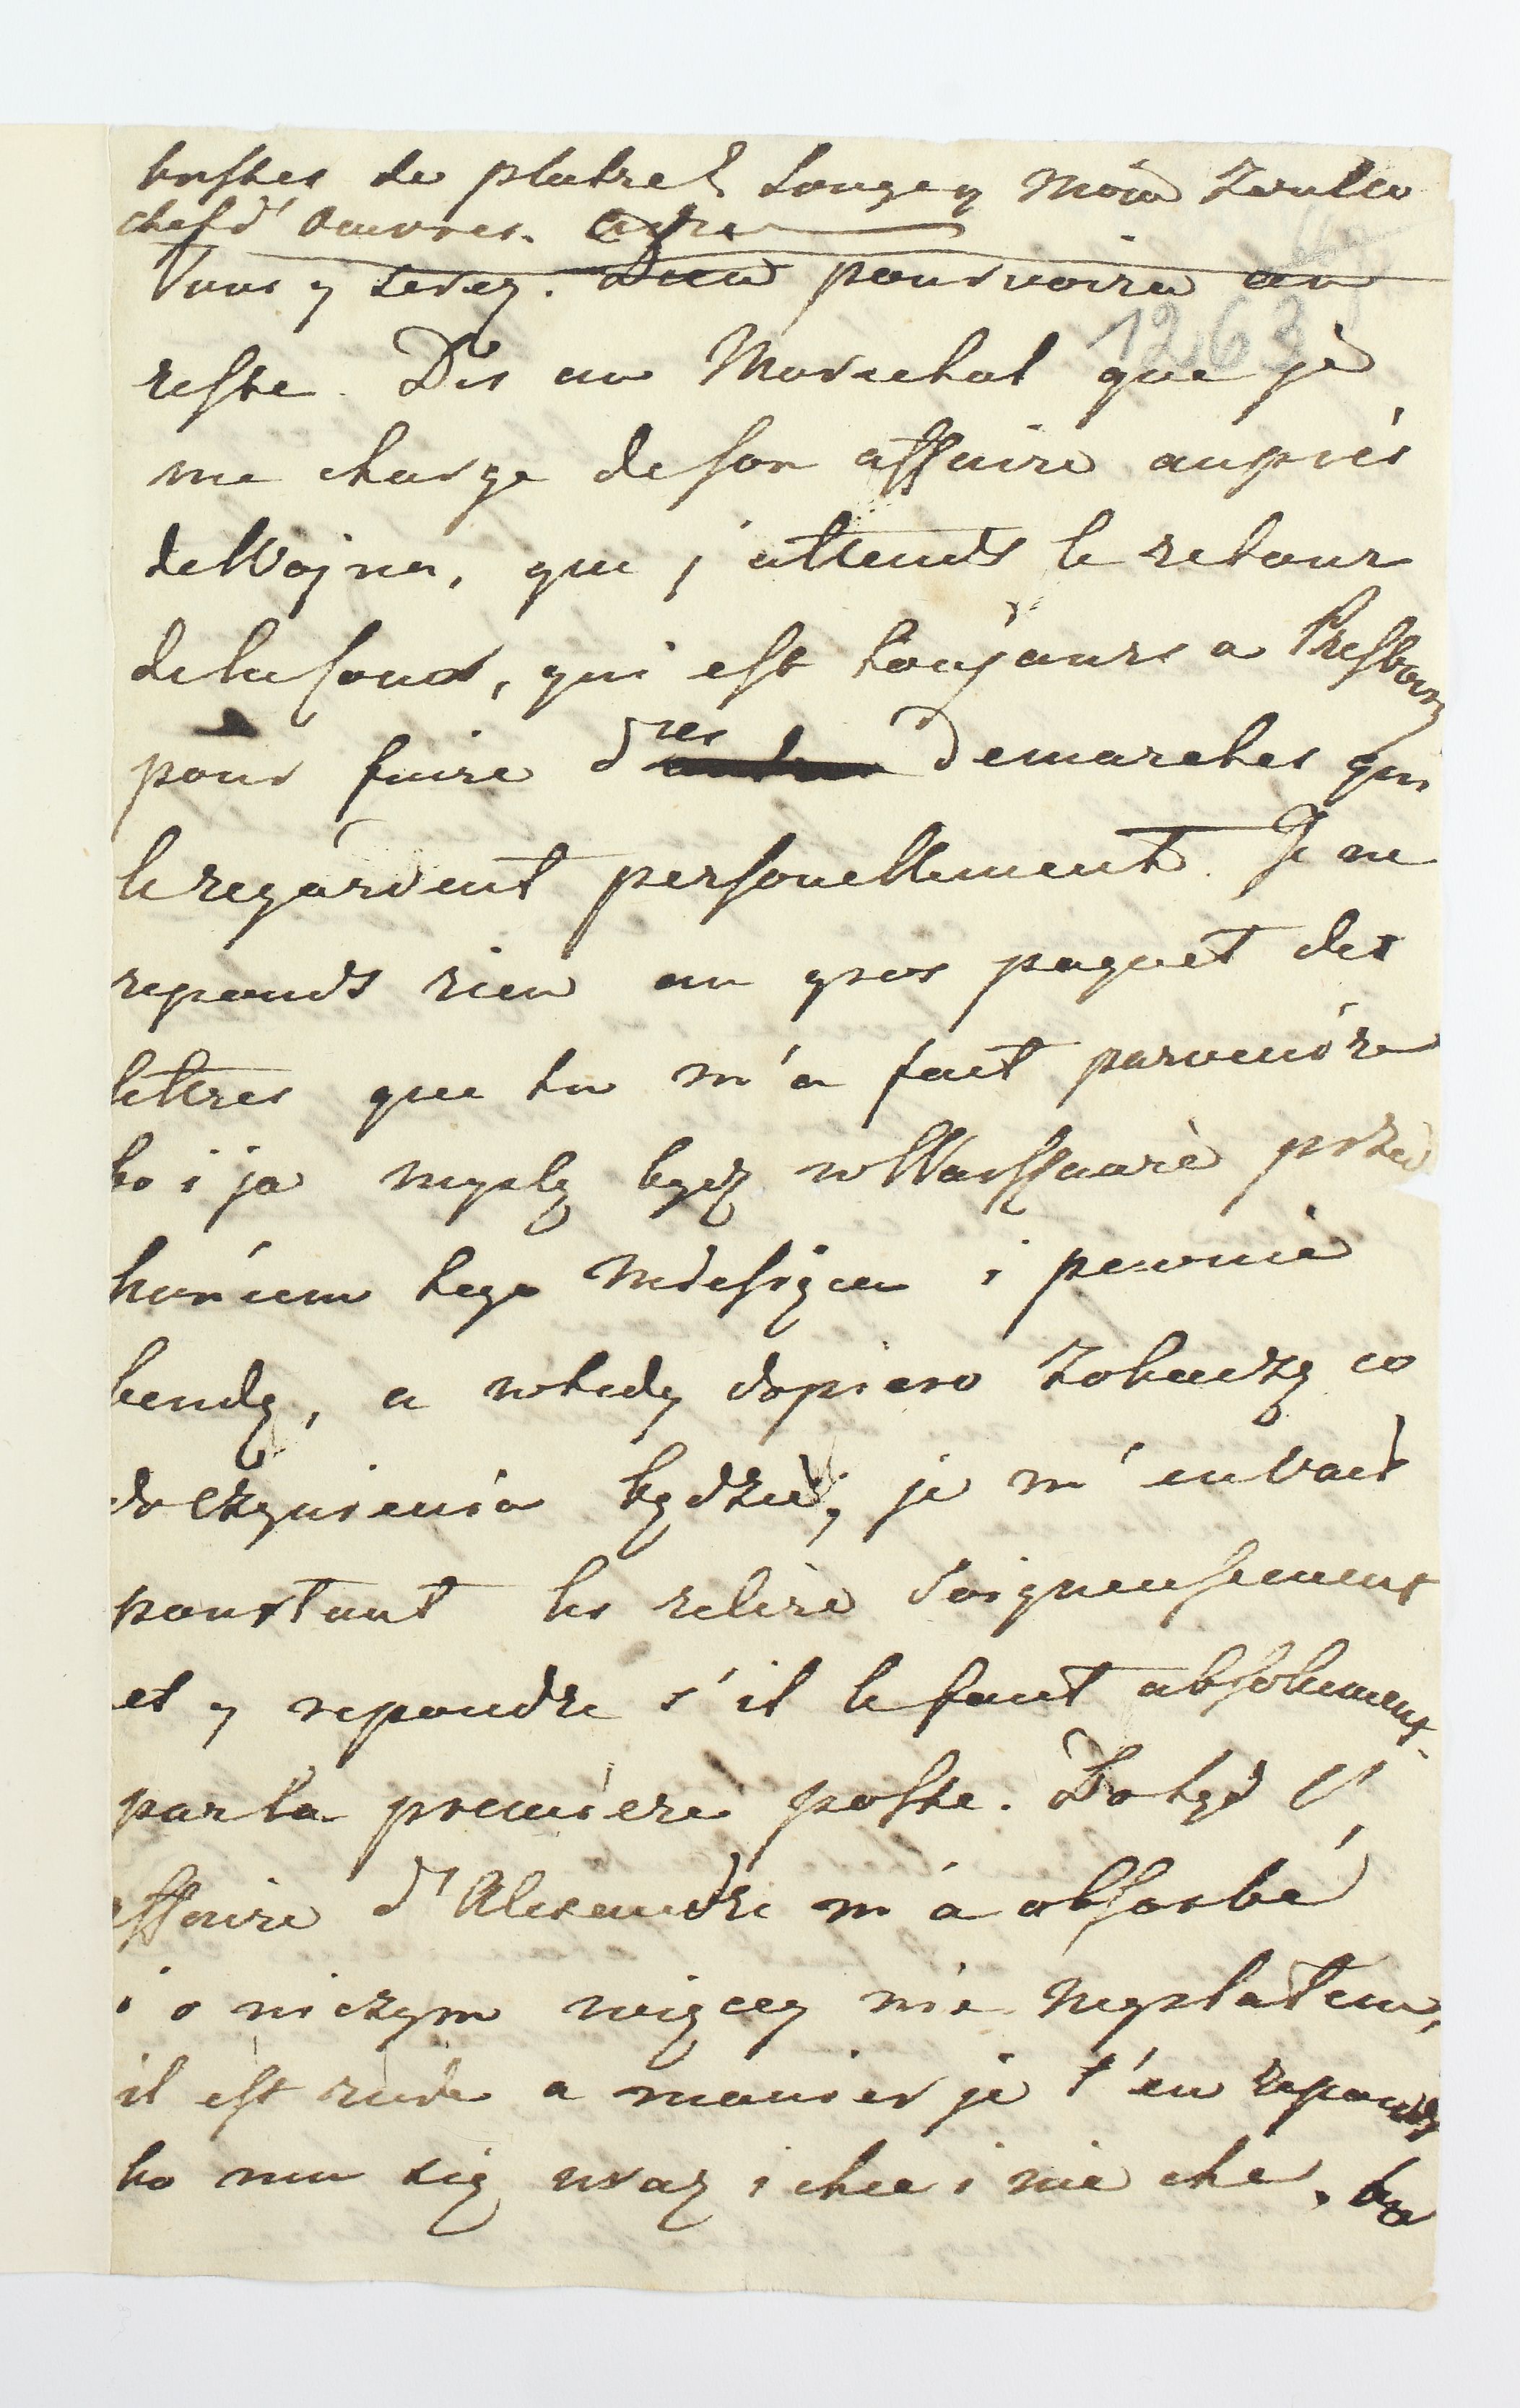 bustes de platre? Songez moia Zeulko
chef d' Oeuvres. Adieu
Vous y serez. Dieu pourvoira au
1263
reste. Dis au Marechal que je
me charge de son affaire auprès
de Wojna, que j'attends le retour
de la Cour, qui est toujours a Presbourg
pour faire des Demarches qui
le regardent personellement. Je ne
reponds rien au gros paquet des
lettres que tu m'a fait parvenire
bo i ja myslę bydź w Warszawie przed
koncem tego miesiąca i pewnie
bendę, a wtedy dopiero zobaczę co
do czynienia będzie, je m'en vais
pourtant les relire Soigneusement
et y repondre s'il le faut absolument
par la premiere poste. Dotąd l'
affaire d'Alexandre m'a absorbé
i o niczym więcey nie myslałem,
il est rude a manier je t'en reponds
bo mu się wraz i chce i nie chce,